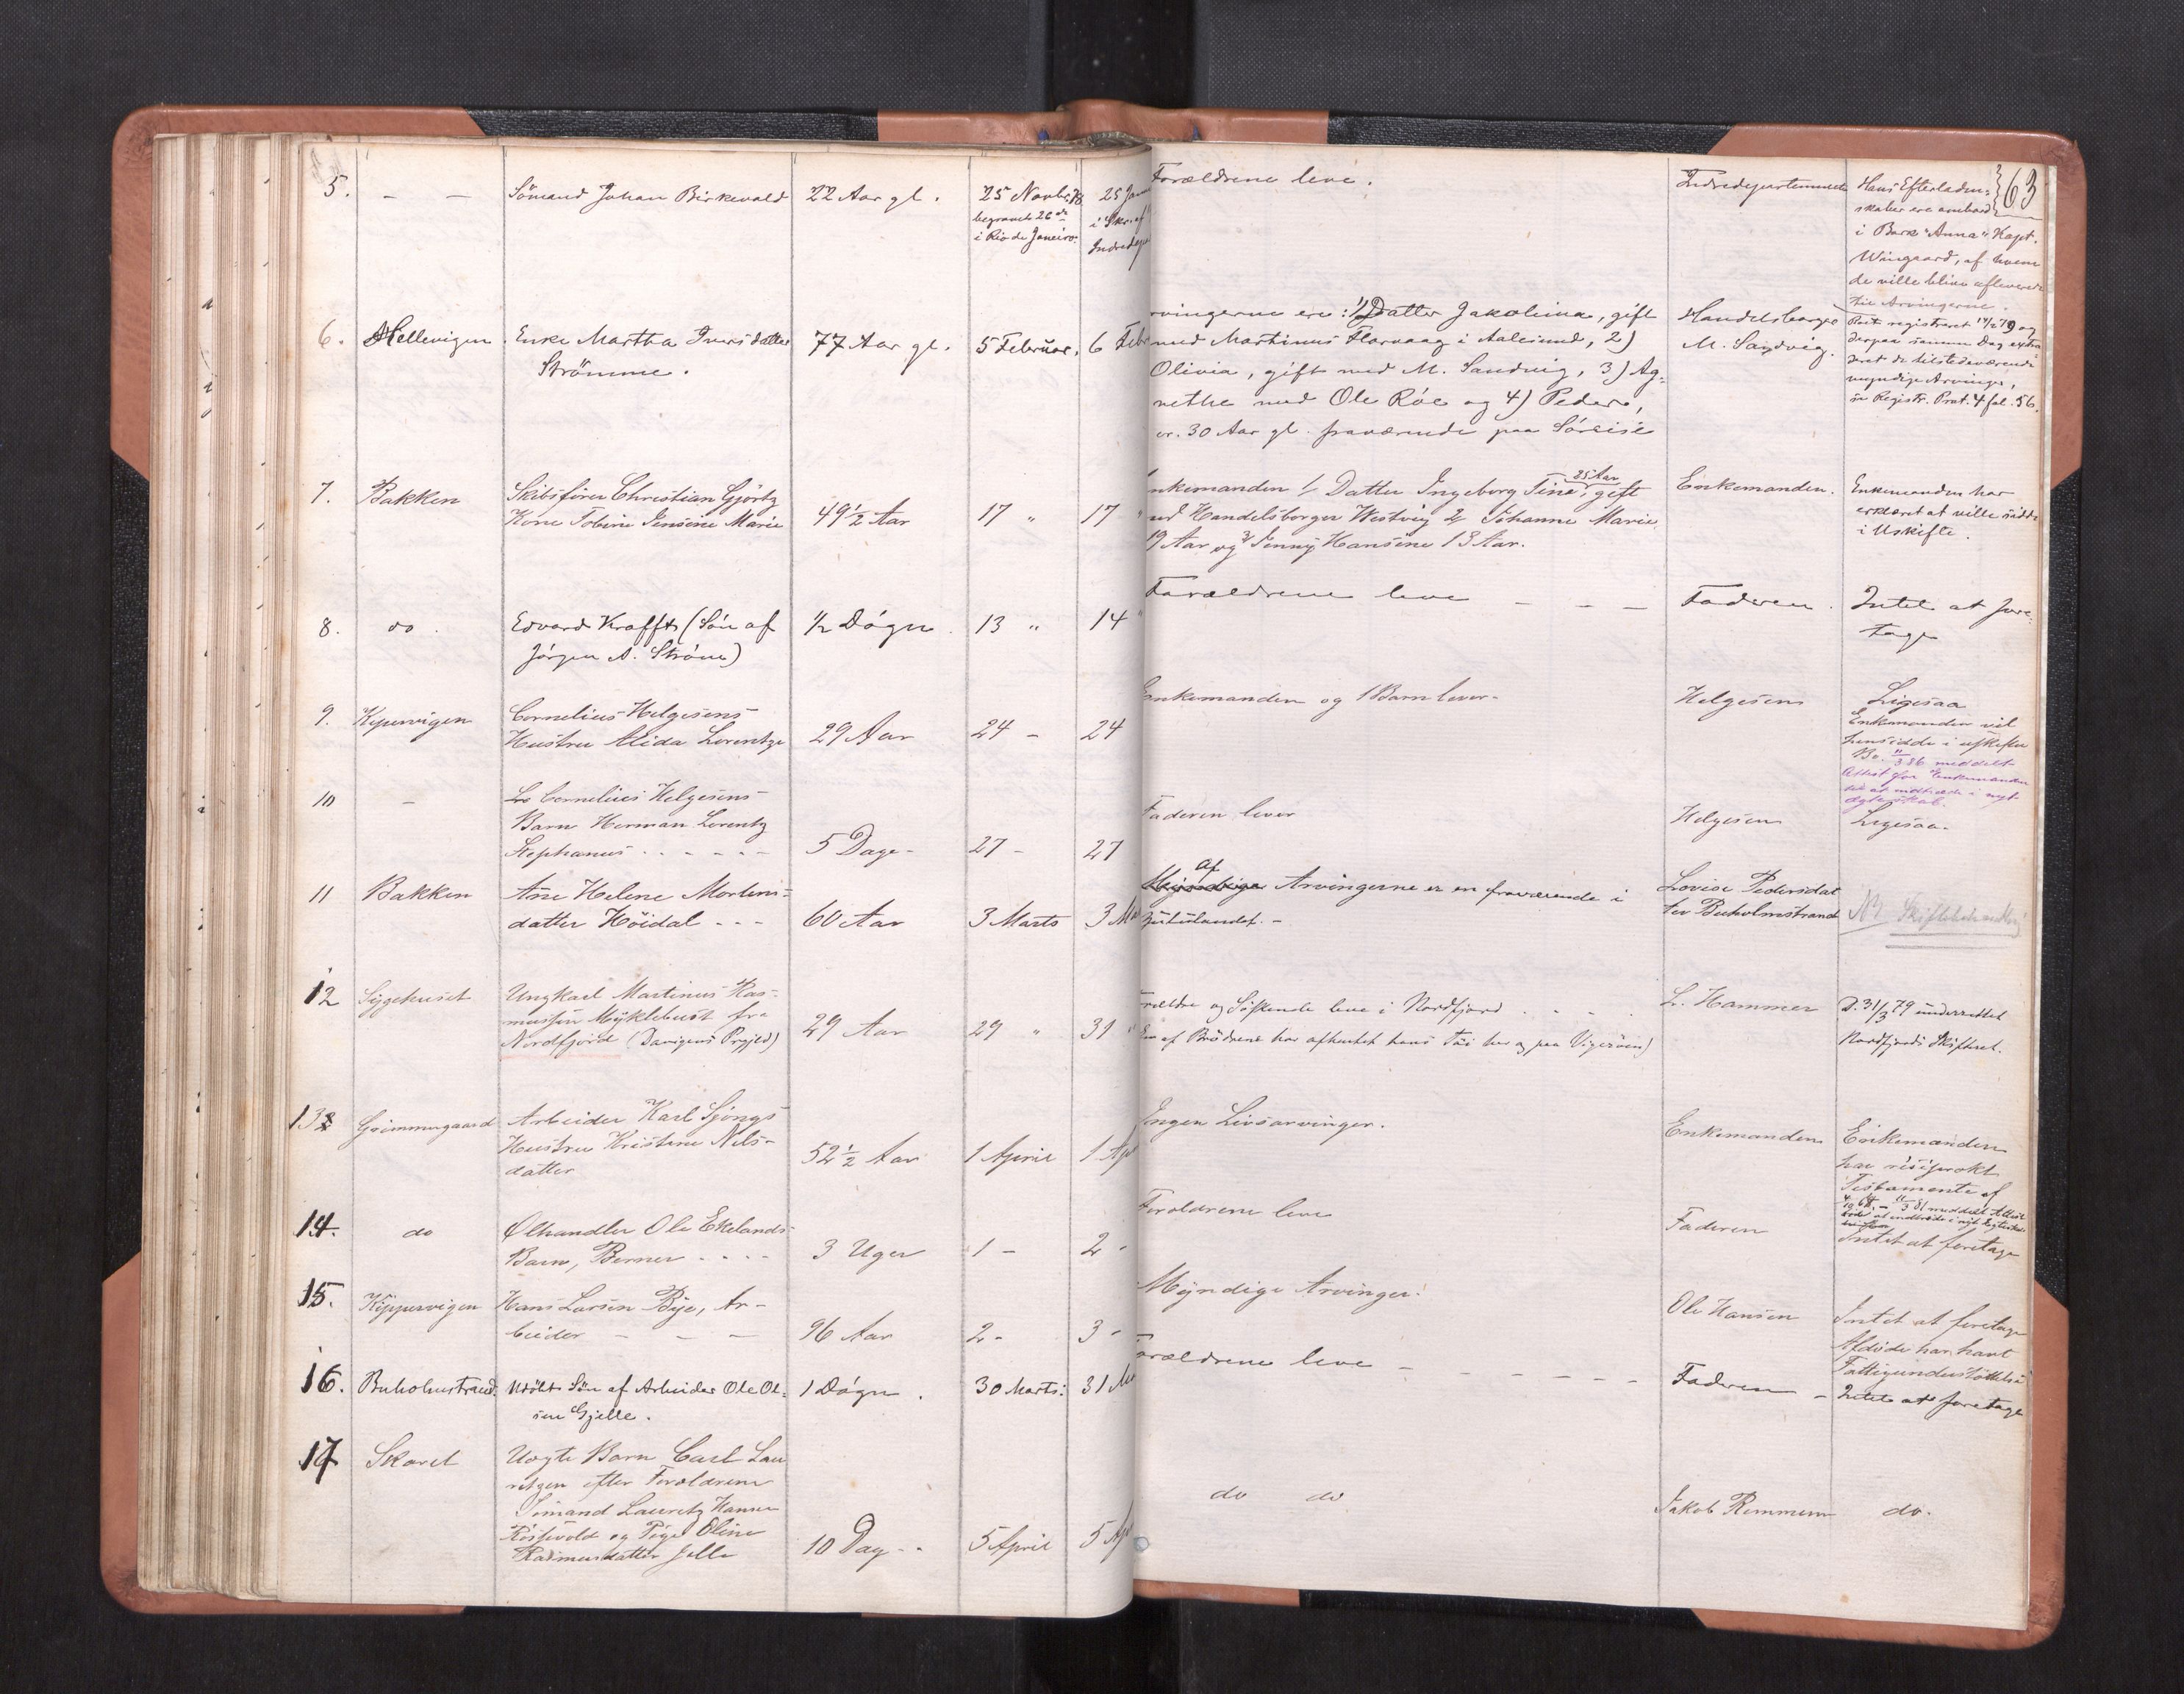 63
5. — — Sömand Johan Birkevold 22 Aar gl. 25 Novbr. 78 25 Janu
begravet 26de i Skr. af
i Rio de Janeiro. Indredep
Forældrene leve. Indredepartementet Hans Efterladen-
skaber ere ombord
i Bark "Anna" Kapt.
Wingaard, af hvem
de ville blive afleverede
til Arvingerne.
6. Hellevigen Enke Martha Iversdatter 77 Aar gl. 5 Februar. 6 Febr
Strömme.
rvingerne ere: 1) Datter Jakolina, gift Handelsborger
med Martinus Flørvaag i Aalesund, 2) M. Sandvig.
Olivia, gift med M. Sandvig, 3) Ag-
nethe med Ole Röe og 4) Peder,
er. 30 Aar gl. fraværende paa Söreise
Boet registreret 14/2 79 og
derpaa samme Dag extra-
deret de tilstedeværende
myndige Arvinger,
se Registr. Prot. 4 fol. 56.
7. Bakken Skibsfører Christian Gjørtz
Kone Tobine Jensine Marie 49½ Aar 17 " 17 "
nkemanden 1/ Datter Ingeborg Tine, 25 Aar, gift Enkemanden.
ed Handelsborger Westvig 2/ Johanne Marie
19 Aar og 3/ Jenny Hansine 13 Aar.
Enkemanden har
erklæret at ville sidde
i Uskifte.
8. do. Edvard Krafft (Sön af ½ Dögn. 13 " 14 "
Jörgen A. Ström)
Forældrene leve — — — Faderen. Intet at fore-
tage
9. Kipervigen Cornelius Helgesens
Hustru Alida Lorentze 29 Aar 24 — 24
Enkemanden og 1 Barn lever — Helgesen Ligesaa
Enkemanden vil
hensidde i uskiftet
Bo. 11/3 86 meddelt
Attest for Enkemanden
til at indtræde i nyt
Ægteskab.
10 — Cornelius Helgesens
Barn Herman Lorentz
Stephanus - - - - - 5 Dage - 27 - 27
Faderen lever Helgesen Ligesaa.
11 Bakken Ane Helene Mortens-
datter Höidal - - - 60 Aar 3 Marts 3 Ma
Af
Myndige Arvingerne er en fraværende i Lovise Pedersdat
Udlandet. — ter Buholmstrand
NB Skiftebehandling
12 Sygehuset Ungkarl Martinus Ras-
mussen Myklebust fra
Nordfjord (Davigens Prgjeld) 29 Aar 29 " 31 "
rældre og Söskende leve i Nordfjord . . . . L. Hammer
En af Brödrene har afhentet hans Töi her og paa Vigeröen)
D. 31/3 79 underrettet
Nordfjords Skifteret.
13 Grimmergaard Arbeider Karl Sjöngs
Hustru Kristine Nils-
datter 52½ Aar 1 April 1 Ap
Ingen Livsarvinger. Enkemanden Enkemanden
har resiprokt
Testamente af
14. do Ølhandler Ole Ekelands
Barn, Berner - - - - 3 Uger 1 — 2 -
Forældrene leve Faderen Intet at foretage
15. Kippervigen Hans Larsen Bye, Ar-
beider — — — 96 Aar 2 - 3 -
Myndige Arvinger. Ole Hansen Intet at foretage
Afdöde har havt
Fattigunderstöttelse
16. Buholmstrand. Udöbt Sön af Arbeider Ole Ol- 1 Dögn. 30 Marts: 31 Ma
sen Gjelle.
rældrene leve — — — — — — Faderen — Intet at foretage
17 Skaret Uægte Barn Carl Lau
ritzen efter Forældrene
Sömand Lauritz Hansen
Rössevold og Pige Oline
Rasmusdatter Jelle 10 Dag - - 5 April 5 Ap
do do Jakob Remmem do.